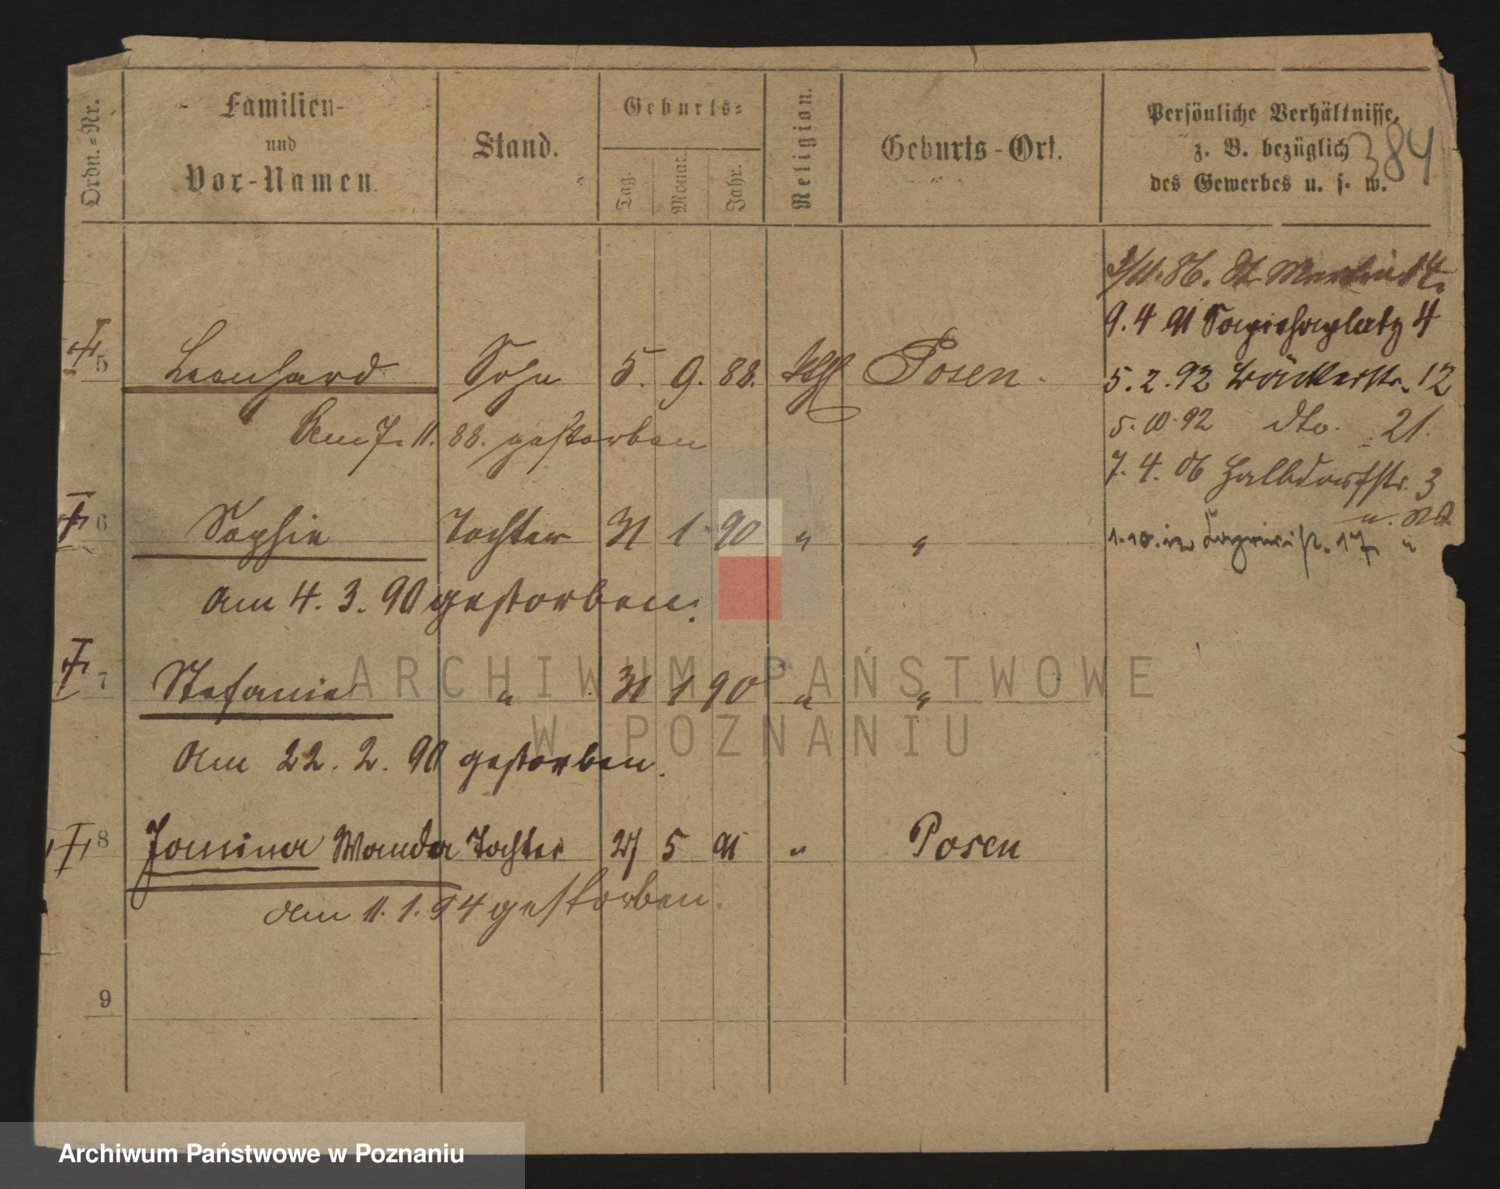 Ordn.-Nr.
Familien-
und
Vor-Namen.
Stand.
Geburts-
Tag.
Monat.
Jahr.
Religion.
Geburts-Ort.
Persönliche Verhältnisse,
z. B. bezüglich
des Gewerbes u. s. w.
384
86. St Martin 74.
9. 4 91 Sapiehaplatz 4
5 Leonhard Sohn 5. 9. 88. kth Posen.
5. 2. 92 Bäckerstr. 12
Am 7. 11. 88. gestorben
5. 10. 92 dto. 21.
7. 4. 06 Halbdorfstr. 3
6 Sophie Tochter 31 1 90 " "
1. 10. 17 "
am 4. 3. 90 gestorben.
7 Stefanie " 31 1 90 " "
ARCHIWUM PAŃSTWOWE
W POZNANIU
am 22. 2. 90 gestorben.
8 Janina Wanda Tochter 27 5 91 " Posen
am 11. 1. 94 gestorben.
9
Archiwum Państwowe w Poznaniu